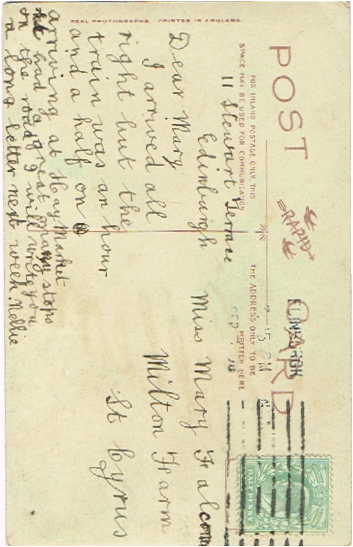 REAL PHOTOGRAPHS. PRINTED IN ENGLAND.
POST CARD
RAPID
FOR INLAND POSTAGE ONLY THIS
SPACE MAY BE USED FOR COMMUNICATION
THE ADDRESS ONLY TO BE
WRITTEN HERE
11 Stewart Terrace
Edinburgh
Dear Mary
I arrived all
right but the
train was an hour
and a half on
arriving at Haymarket
had to many stops
on the road I will write you
a long letter next week. Nellie
Miss Mary Falconer
Milton Farm
St Cyrus